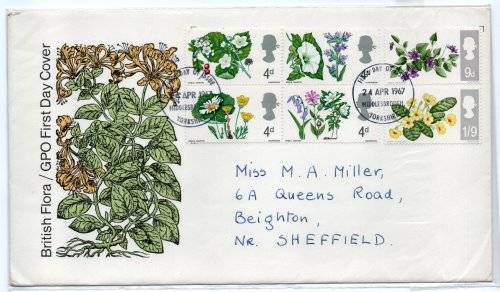 British Flora / GPO First Day Cover
4d
4d
9d
4d
4d
1/9
FIRST DAY OF ISSUE
24 APR 1967
MIDDLESBOROUGH
YORKSHIRE
Miss M. A. Miller,
6A Queens Road,
Beighton,
Nr. SHEFFIELD.